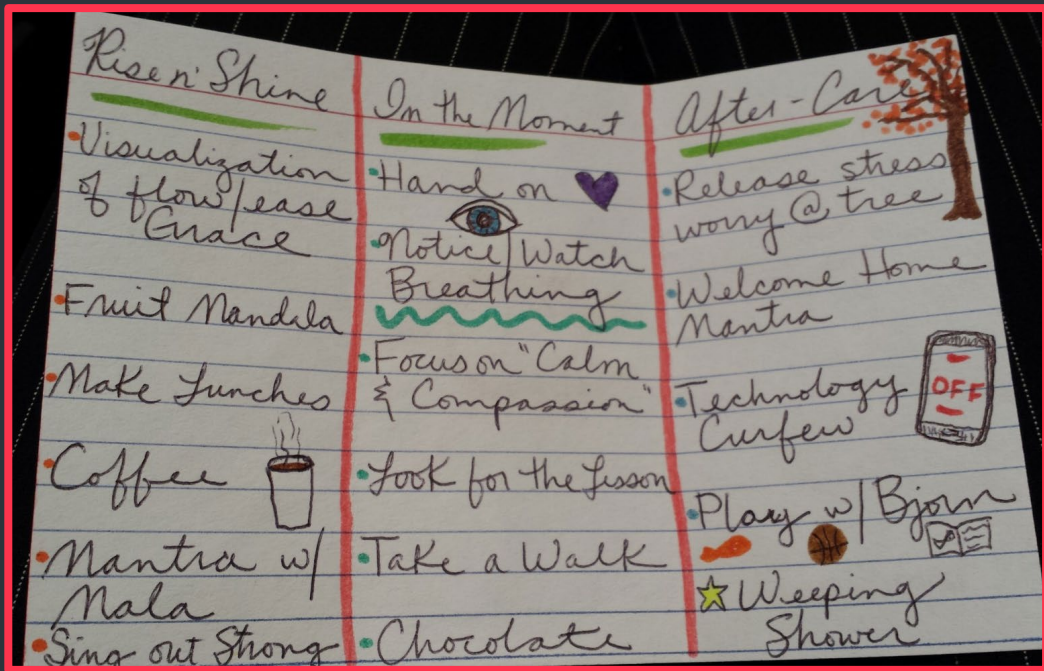 Rise n' Shine
Visualization
of flow/ease
Grace
Fruit Mandala
Make Lunches
Coffee
Mantra w/
Mala
Sing out Strong
In the Moment
Hand on
Notice/Watch
Breathing
Focus on "Calm
& Compassion"
Look for the Lesson
Take a Walk
Chocolate
After-Care
Release stress
worry @ tree
Welcome Home
Mantra
Technology
Curfew
OFF
Play w/ Bjorn
Weeping
Shower